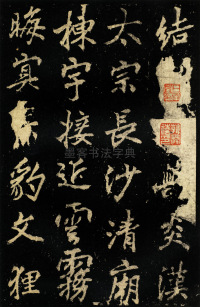 結與炎漢
太宗長沙清廟
棟宇接近雲霧
晦冥豹文狸
书法字典